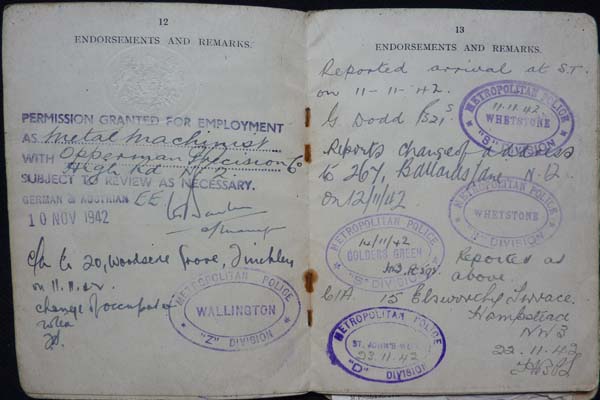 12
ENDORSEMENTS AND REMARKS.
PERMISSION GRANTED FOR EMPLOYMENT
AS Metal Machinist
WITH Opperman Precision Co
High Rd N.2.
SUBJECT TO REVIEW AS NECESSARY.
GERMAN & AUSTRIAN EE
10 NOV 1942
c/a to 20, Woodside Grove, Finchley
on 11.11.42
change of
METROPOLITAN POLICE
WALLINGTON
"Z" DIVISION
13
ENDORSEMENTS AND REMARKS.
Reported arrival at S.T.
on 11-11-42.
G. Dodd
METROPOLITAN POLICE
11.11.42
WHETSTONE
"S" DIVISION
Reports change of address
to 267, Ballards Lane N.12
on 12/11/42
WHETSTONE
DIVISION
METROPOLITAN POLICE
14/11/42
GOLDERS GREEN
"S" DIVISION
Reported as
above.
C/A 15 Elsworthy Terrace
Hampstead
NW3
22.11.42
METROPOLITAN POLICE
ST. JOHN'S WOOD
23.11.42
"D" DIVISION